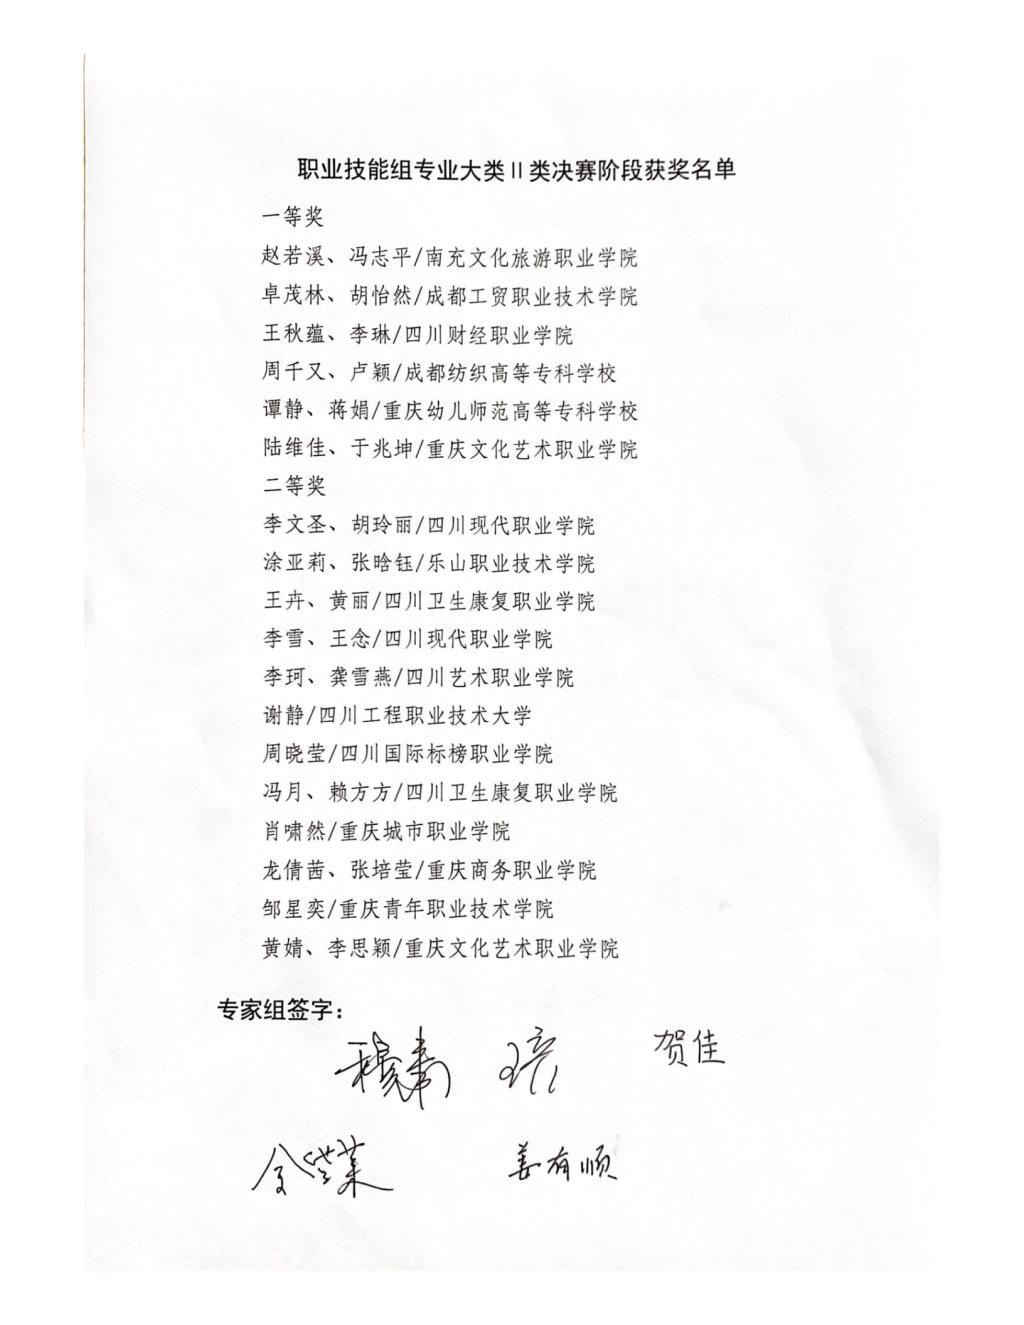 职业技能组专业大类Ⅱ类决赛阶段获奖名单
一等奖
赵若溪、冯志平/南充文化旅游职业学院
卓茂林、胡怡然/成都工贸职业技术学院
王秋蕴、李琳/四川财经职业学院
周千又、卢颖/成都纺织高等专科学校
谭静、蒋娟/重庆幼儿师范高等专科学校
陆维佳、于兆坤/重庆文化艺术职业学院
二等奖
李文圣、胡玲丽/四川现代职业学院
涂亚莉、张晗钰/乐山职业技术学院
王卉、黄丽/四川卫生康复职业学院
李雪、王念/四川现代职业学院
李珂、龚雪燕/四川艺术职业学院
谢静/四川工程职业技术大学
周晓莹/四川国际标榜职业学院
冯月、赖方方/四川卫生康复职业学院
肖啸然/重庆城市职业学院
龙倩茜、张培莹/重庆商务职业学院
邹星奕/重庆青年职业技术学院
黄婧、李思颖/重庆文化艺术职业学院
专家组签字：
贺佳
姜有顺